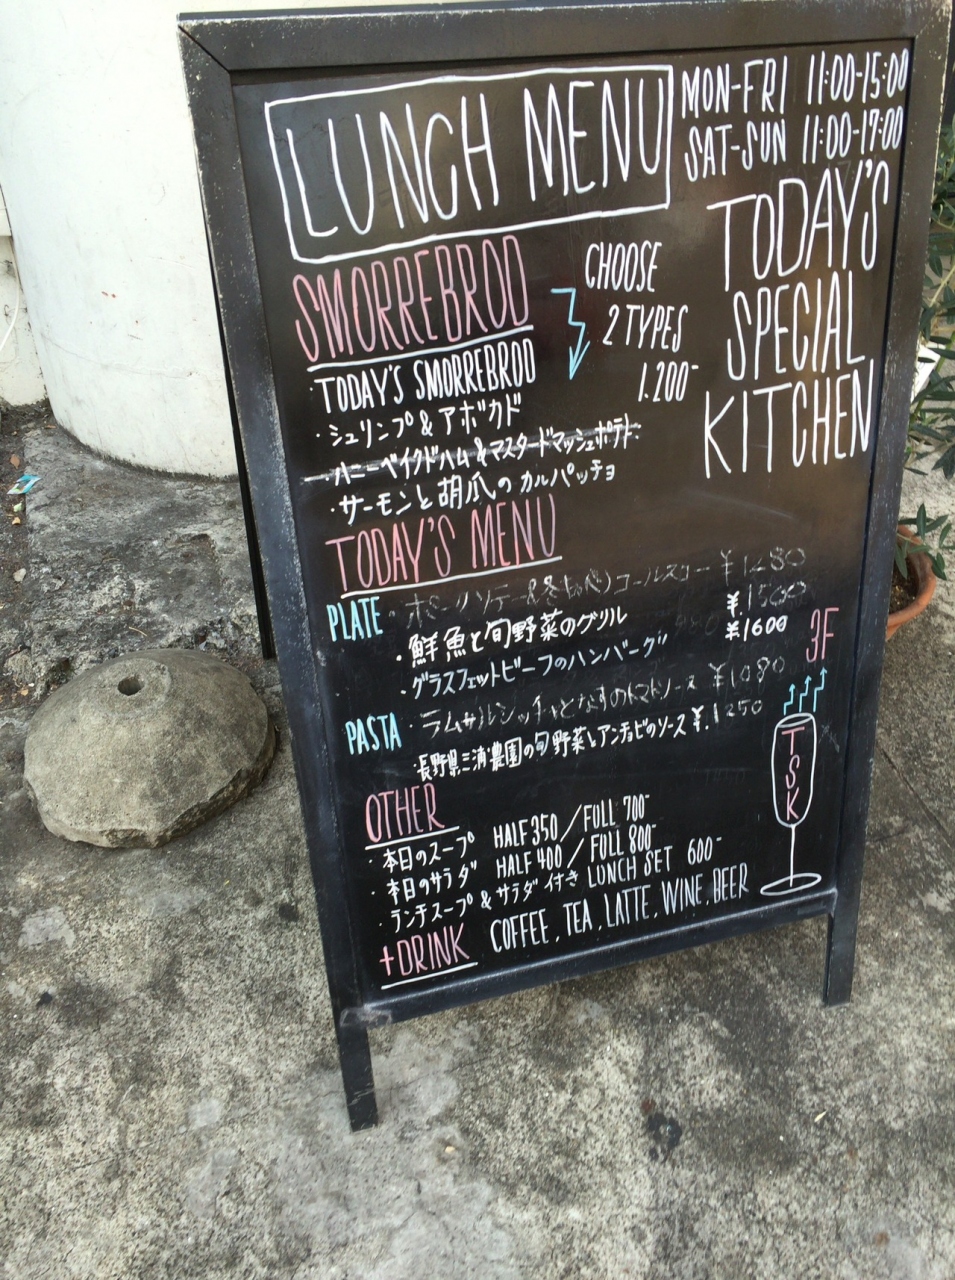 LUNCH MENU
MON-FRI 11:00-15:00
SAT-SUN 11:00-17:00
TODAY'S
SPECIAL
KITCHEN
SMORREBROD
CHOOSE
2 TYPES
1.200-
TODAY'S SMORREBROD
・シュリンプ&アボカド
・ハニーベイクドハム&マスタードマッシュポテト
・サーモンと胡瓜のカルパッチョ
TODAY'S MENU
PLATE
コールスロー ¥1280
・鮮魚と旬野菜のグリル ¥.1500
・グラスフェットビーフのハンバーグ ¥1600
3F
PASTA ・ラムサルシッチャとなすのトマトソース ¥1080
・長野県三浦農園の旬野菜とアンチョビのソース ¥.1250
TSK
OTHER
・本日のスープ HALF 350/FULL 700-
・本日のサラダ HALF 400/FULL 800-
・ランチスープ&サラダ付き LUNCH SET 600-
+DRINK COFFEE, TEA, LATTE, WINE, BEER